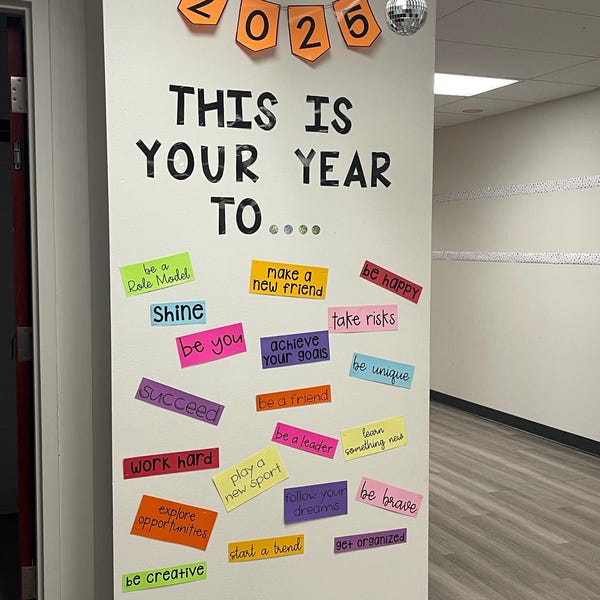 2025
THIS IS
YOUR YEAR
TO....
be a
Role Model
make a
new friend
be happy
Shine
take risks
be you
achieve
your goals
be unique
succeed
be a friend
be a leader
learn
something new
work hard
play a
new sport
follow your
dreams
be brave
explore
opportunities
start a trend
get organized
be creative